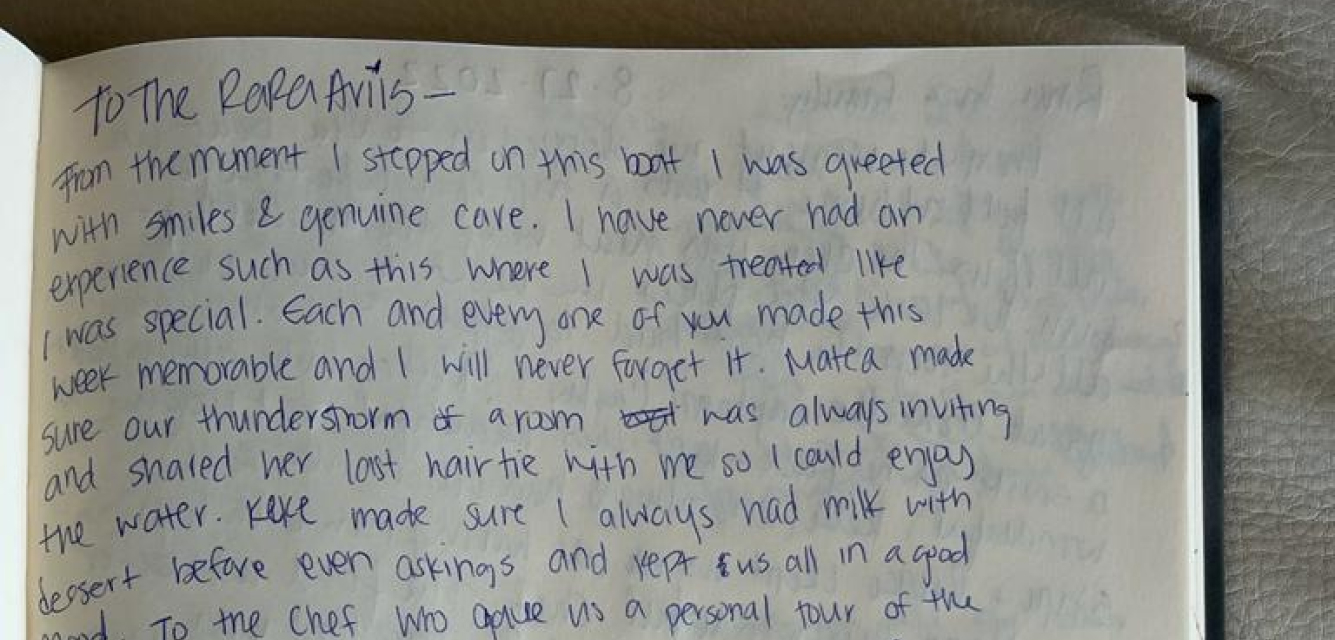 To The Rara Aviis –
From the moment I stepped on this boat I was greeted
with smiles & genuine care. I have never had an
experience such as this where I was treated like
I was special. Each and every one of you made this
week memorable and I will never forget it. Matea made
sure our thunderstorm of a room was always inviting
and shared her last hairtie with me so I could enjoy
the water. Keke made sure I always had milk with
dessert before even askings and kept us all in a good
mood. To the chef who gave us a personal tour of the